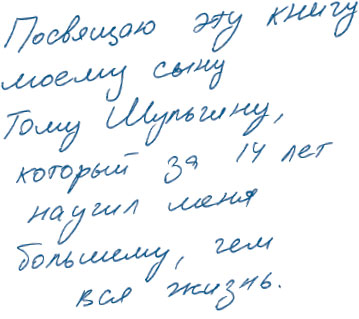 Посвящаю эту книгу
моему сыну
Тому Шульгину,
который за 14 лет
научил меня
большему, чем
вся жизнь.